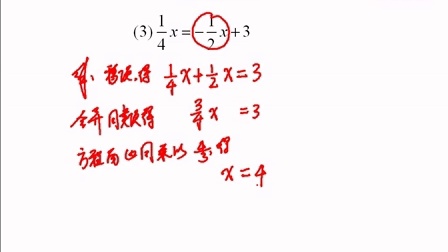 (3) 1/4 x = -1/2 x + 3
解: 移项,得 1/4 x + 1/2 x = 3
合并同类项得 3/4 x = 3
方程两边同乘以 4/3, 得
x = 4